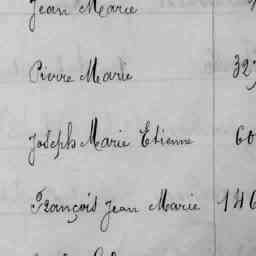 Jean Marie
Pierre Marie 32
Joseph Marie Etienne 60
François Jean Marie 146